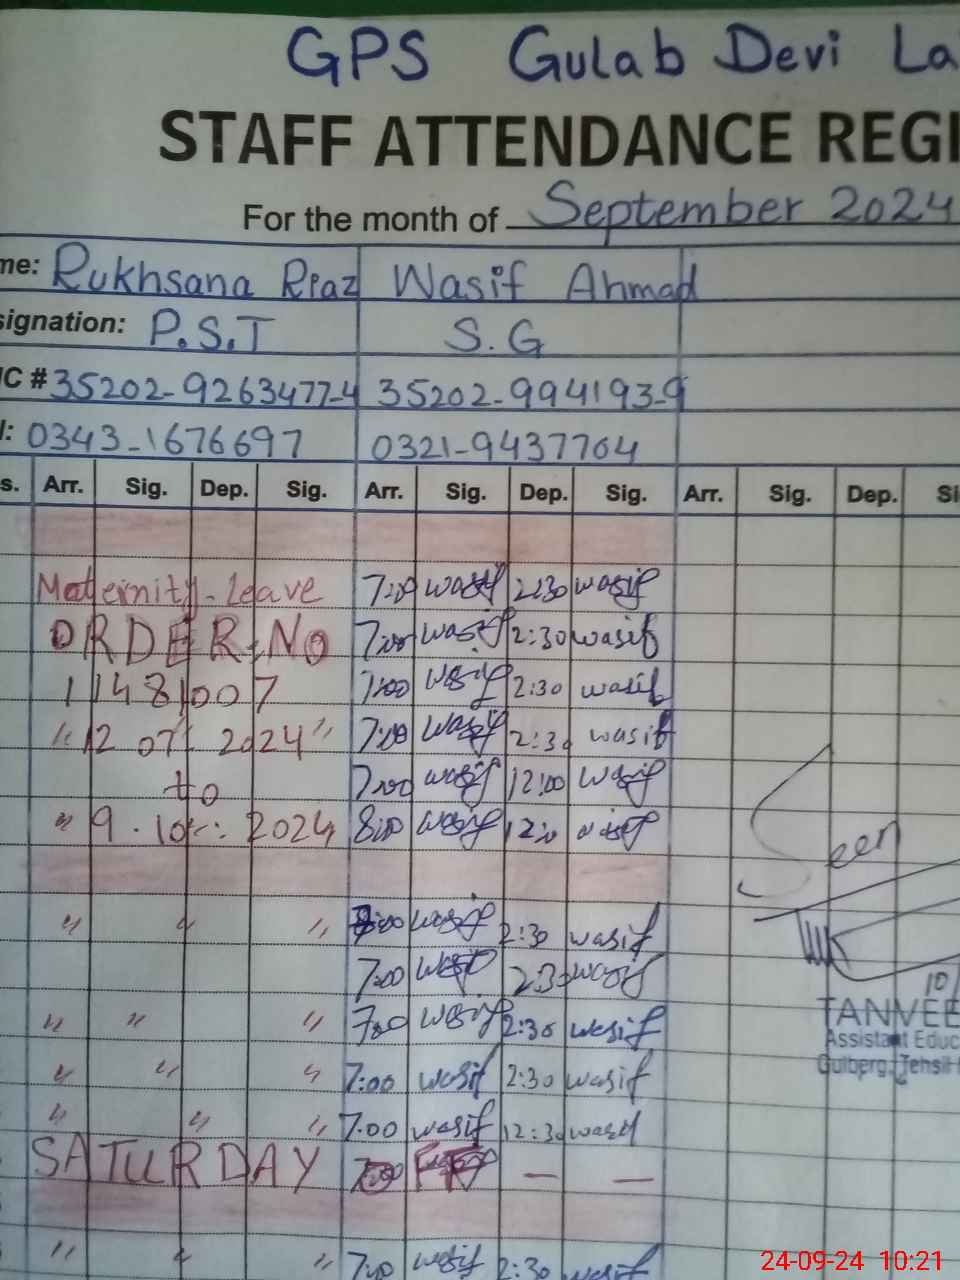 GPS Gulab Devi La
STAFF ATTENDANCE REGI
For the month of September 2024
me: Rukhsana Riaz Wasif Ahmad
signation: P.S.T S.G
IC # 35202-9263477-4 35202-994193-9
l: 0343-1676697 0321-9437704
s. Arr. Sig. Dep. Sig. Arr. Sig. Dep. Sig. Arr. Sig. Dep. Si
Maternity-Leave 7:00 wasif 2:30 wasif
ORDER.NO 7:00 wasif 2:30 wasif
11481007 7:00 wasif 2:30 wasif
" 12 07 2024 " 7:00 wasif 2:30 wasif
to 7:00 wasif 12:00 wasif
" 9.10 2024 8:00 wasif wasif
Seen
" " " 8:00 wasif 2:30 wasif
7:00 wasif 2:30 wasif
10
" " " 7:00 wasif 2:30 wasif
TANVEE
Assistant Educ
Gulberg, Tehsil
" " " 7:00 wasif 2:30 wasif
" " " 7:00 wasif 12:30 wasif
SATURDAY — —
" " " 7:00 wasif 2:30 wasif
24-09-24 10:21